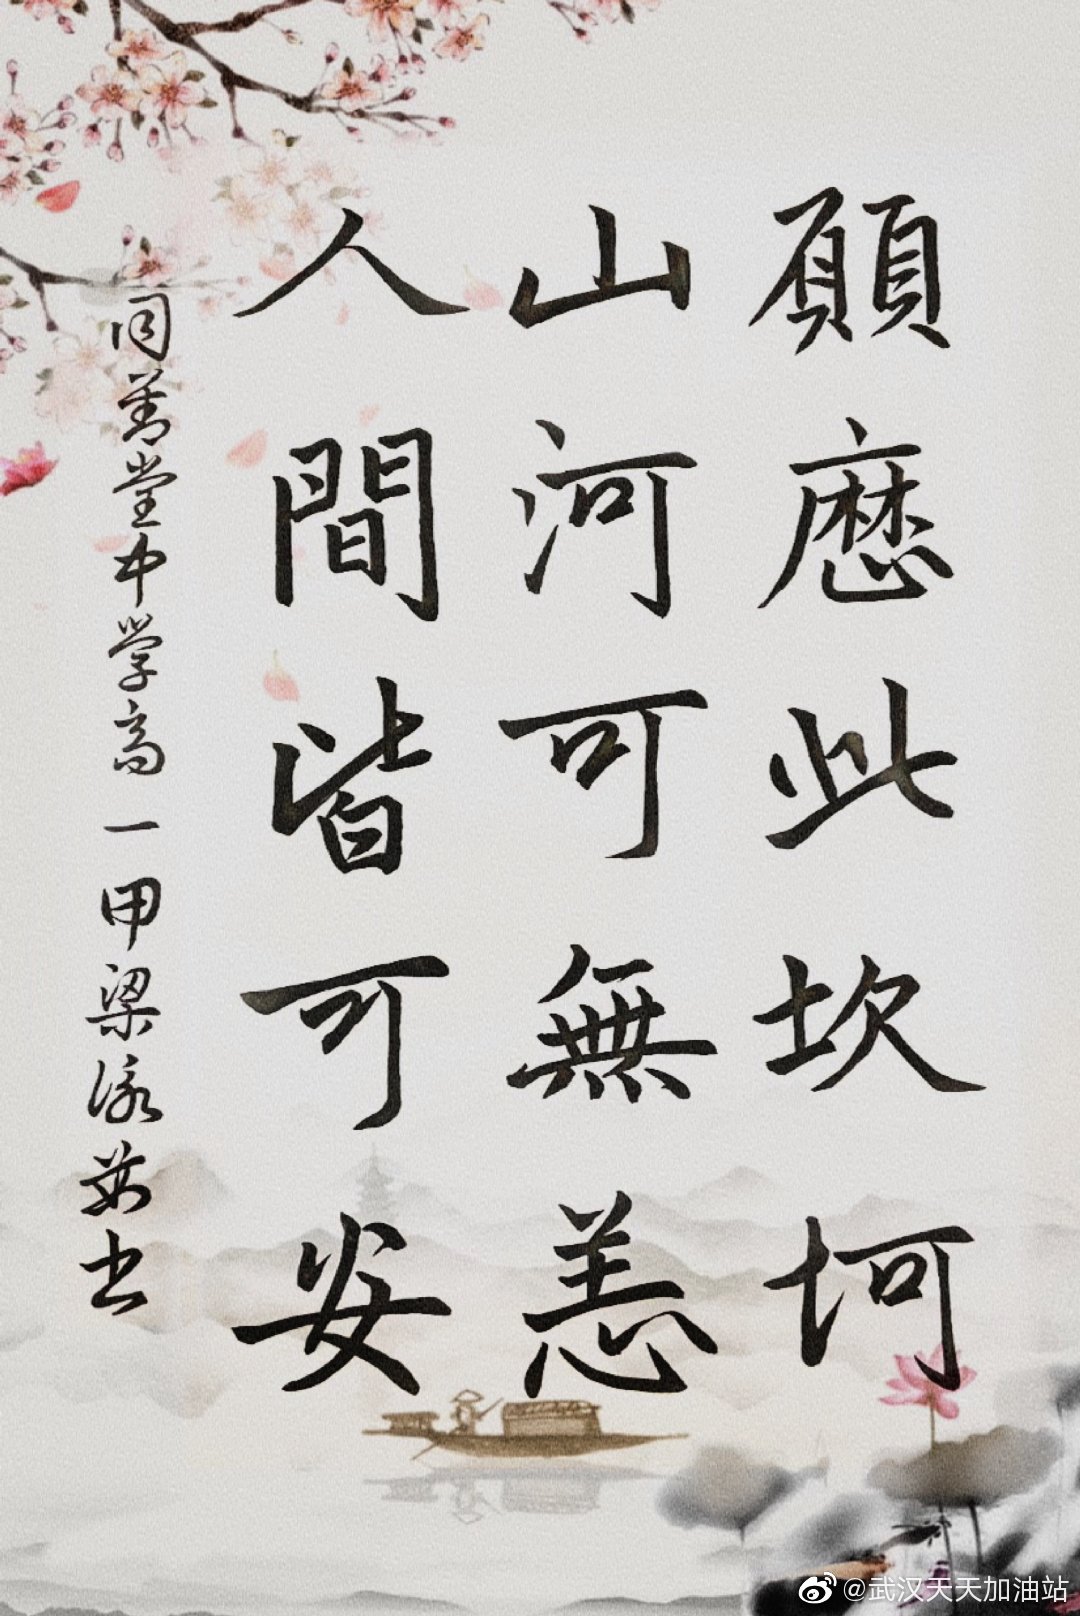 願歷此坎坷
山河可無恙
人間皆可安
同善堂中学高一甲梁泳书
@武汉天天加油站